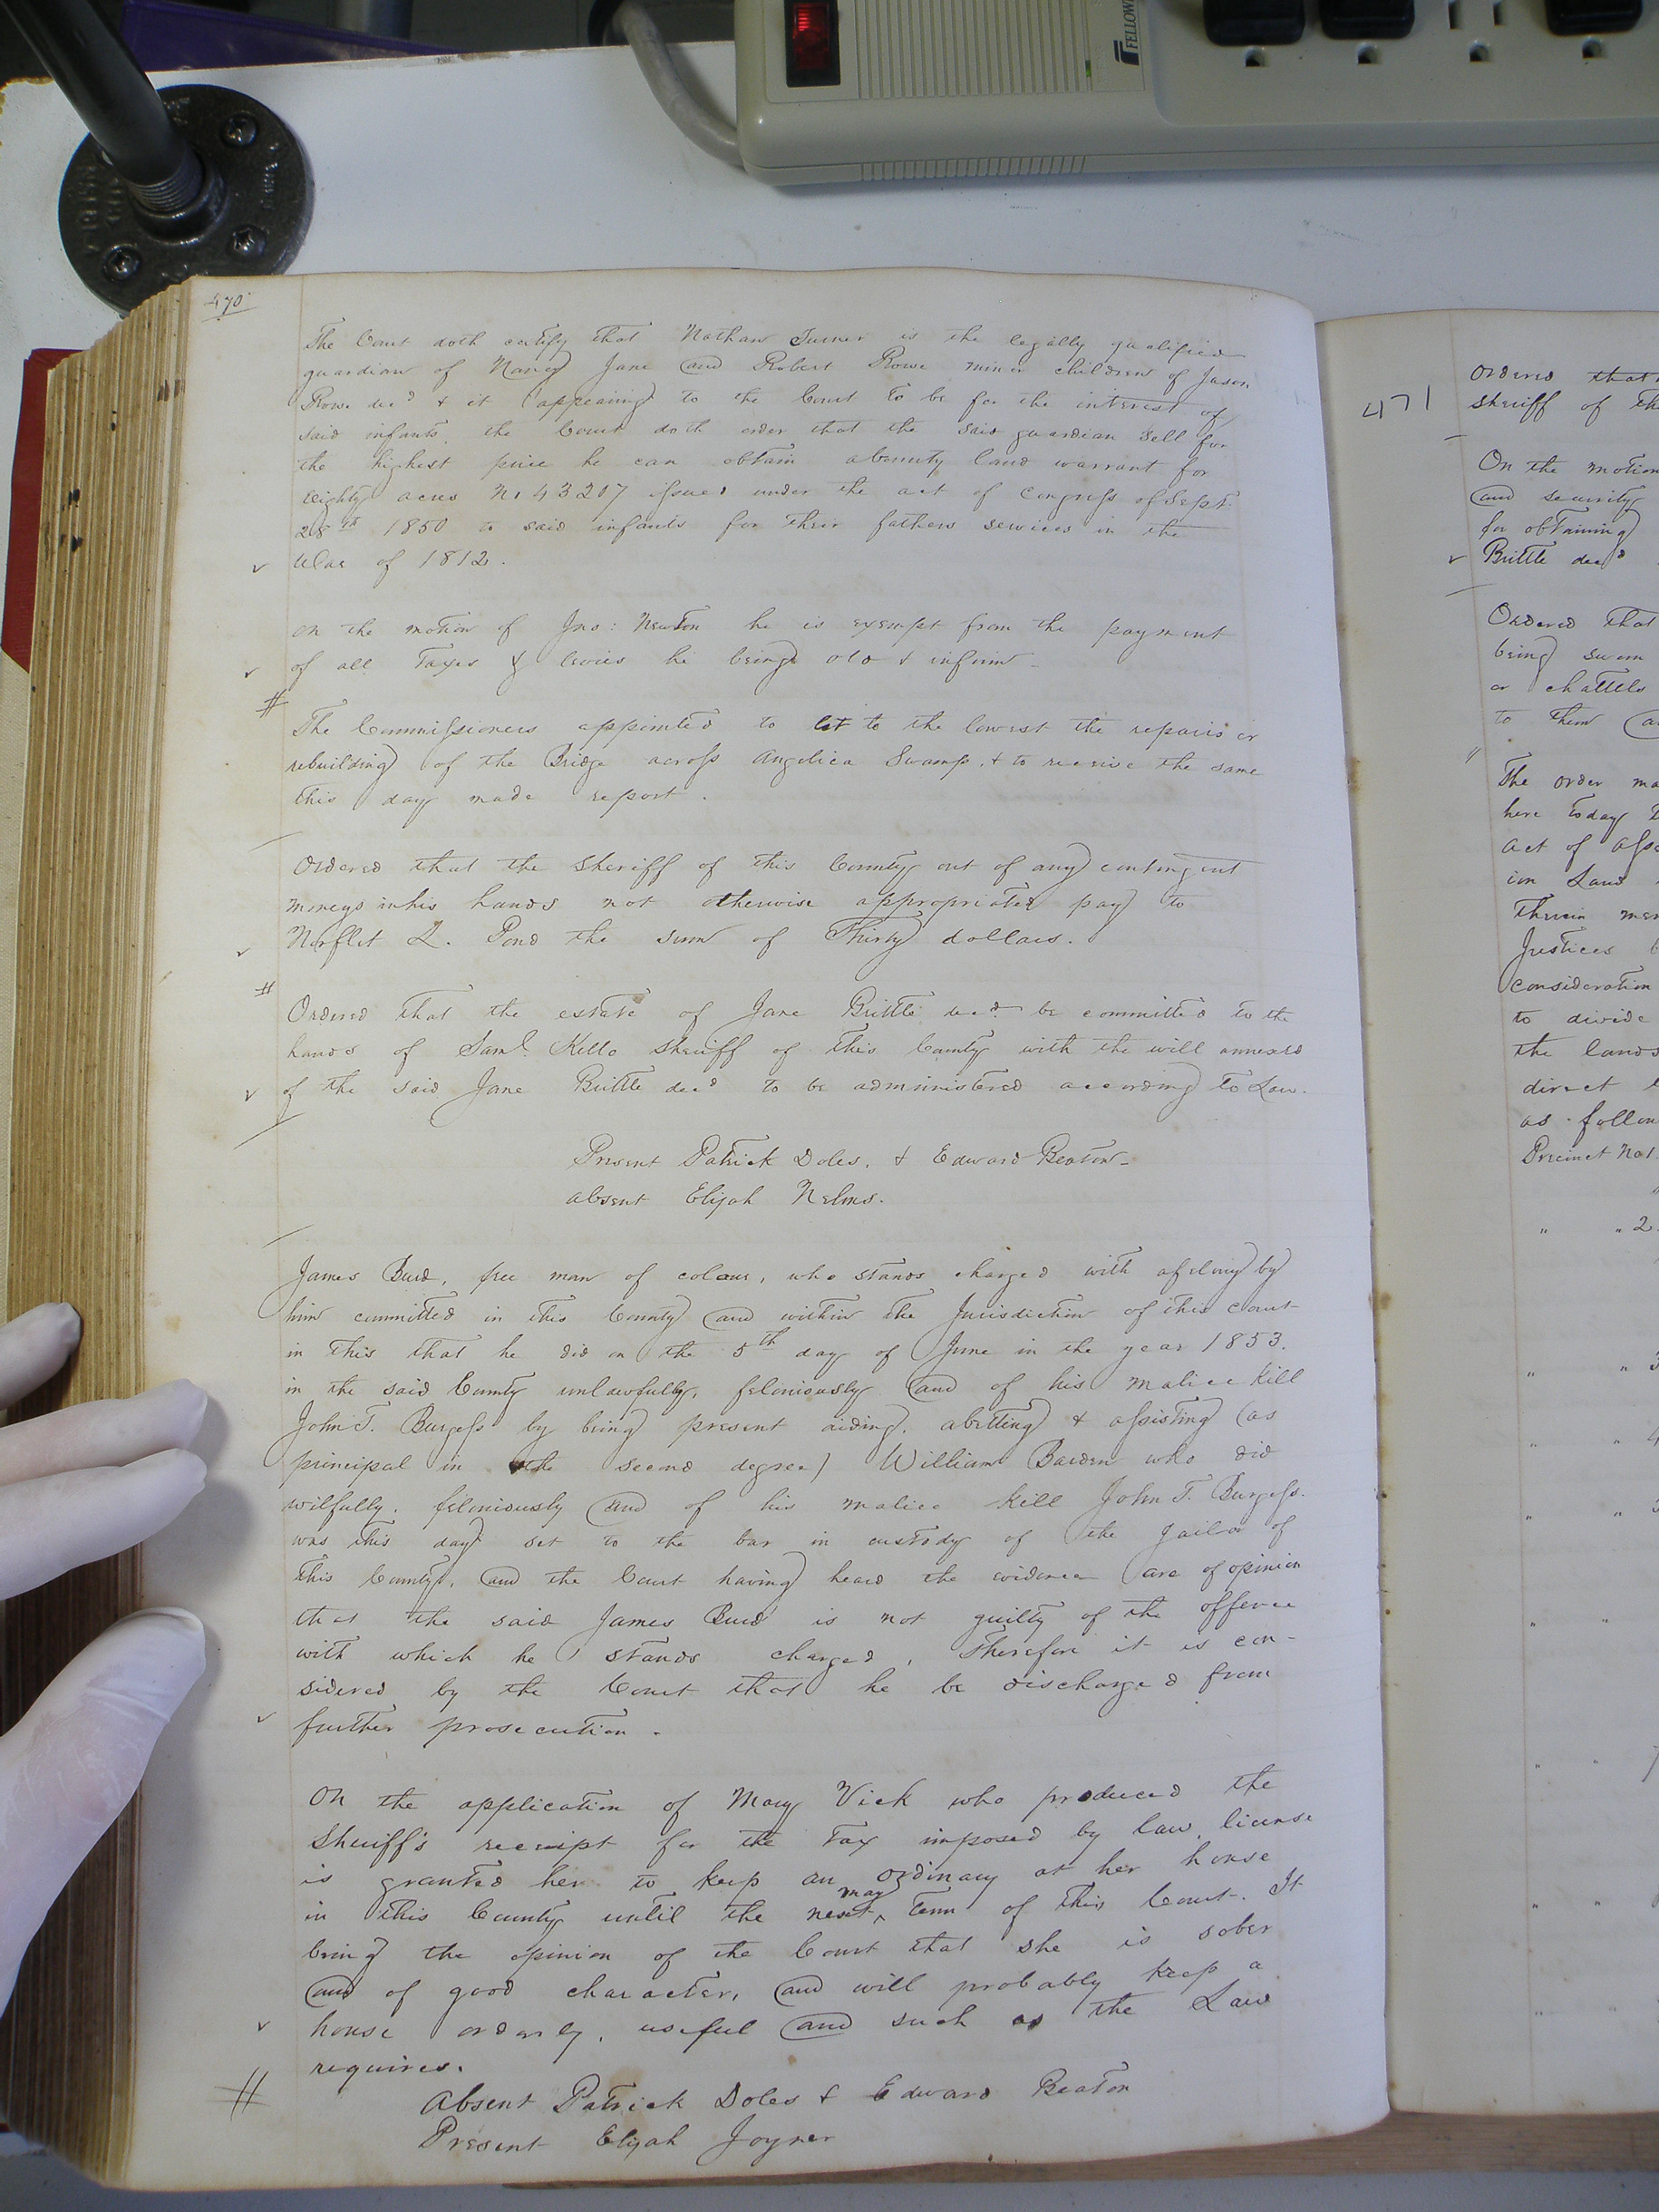 FELLOW
470
The Court doth certify that Nathan Turner is the legally qualified
guardian of Nancy Jane and Robert Rowe minor children of Jason
Rowe decd & it appearing to the Court to be for the interest of
said infants, the Court doth order that the said guardian sell for
the highest price he can obtain a bounty land warrant for
eighty acres No 43207 issued under the act of Congress of Sept.
28th 1850 to said infants for their fathers services in the
War of 1812.
On the motion of Jno: Newton he is exempt from the payment
of all Taxes & levies he being old & infirm
#
The Commissioners appointed to let to the lowest the repairs or
rebuilding of the Bridge across Angelica Swamp, & to receive the same
this day made report.
Ordered that the Sheriff of this County out of any contingent
moneys in his hands not otherwise appropriated pay to
Norflet L. Pond the sum of Thirty dollars.
#
Ordered that the estate of Jane Brittle decd be committed to the
hands of Saml. Kello Sheriff of this County with the will annexed
of the said Jane Brittle decd to be administered according to Law.
Present Patrick Doles, & Edward Beaton
absent Elijah Nelms.
James Burd, free man of colour, who stands charged with a felony by
him committed in this County and within the Jurisdiction of this court
in this that he did on the 5th day of June in the year 1853.
in the said County unlawfully, feloniously and of his malice kill
John T. Burgess by being present aiding, abetting & assisting (as
principal in the second degree) William Barden who did
wilfully, feloniously and of his malice kill John T. Burgess.
was this day set to the bar in custody of the Jailor of
this County, and the Court having heard the evidence are of opinion
that the said James Burd is not guilty of the offence
with which he stands charged, Therefore it is con-
sidered by the Court that he be discharged from
further prosecution.
On the application of Mary Vick who produced the
Sheriff's receipt for the Tax imposed by law, license
is granted her to keep an ordinary at her house
in this County until the next ^may Term of this Court. It
being the opinion of the Court that she is sober
and of good character, and will probably keep a
house orderly, useful and such as the Law
requires.
#
Absent Patrick Doles & Edward Beaton
Present Elijah Joyner
471
Ordered that
Sheriff of th
On the motion
and security
for obtaining
Brittle decd
Ordered that
being sworn
or chattels
to them
The order ma
here today
act of asse
ion Laws
Therein men
Justices
consideration
to divide
the lands
direct
as follow
Precinct No 1.
" " 2.
" " 3
" " 4